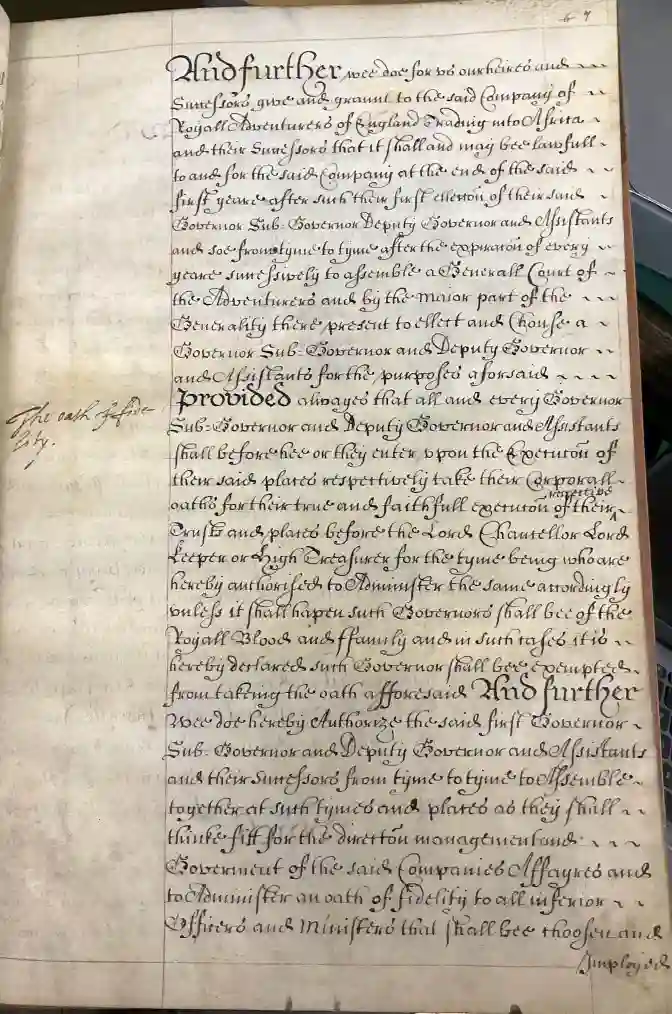 67
And further wee doe for vs our heires and
Successors give and graunt to the said Company of
Royall Adventurers of England Trading into Africa
and their Successors that it shall and may bee lawfull
to and for the said Company at the end of the said
first yeare after such their first ellecc̃on of their said
Governor Sub-Governor Deputy Governor and Assistants
and soe from tyme to tyme after the expirac̃on of every
yeare successively to assemble a Generall Court of
the Adventurers and by the Maior part of the
Generality there present to ellect and Choose a
Governor Sub-Governor and Deputy Governor
and Assistants for the purposes aforsaid
Provided alwayes that all and every Governor
The oath of fide
lity.
Sub-Governor and Deputy Governor and Assistants
shall before hee or they enter vpon the Execuc̃on of
their said places respectively take their Corporall
oaths for their true and faithfull execuc̃on of their respective
Trusts and places before the Lord Chancellor Lord
Keeper or High Treasurer for the tyme being who are
hereby authorised to Administer the same accordingly
vnless it shall hapen such Governors shall bee of the
Royall Blood and ffamily and in such cases it is
hereby declared such Governor shall bee exempted
from takeing the oath afforesaid And further
Wee doe hereby Authorize the said first Governor
Sub-Governor and Deputy Governor and Assistants
and their Successors from tyme to tyme to Assemble
together at such tymes and places as they shall
thinke fitt for the direcc̃on management and
Goverment of the said Companies Affayres and
to Administer an oath of fidelity to all inferior
Officers and Ministers that shall bee choosen and
Imployed